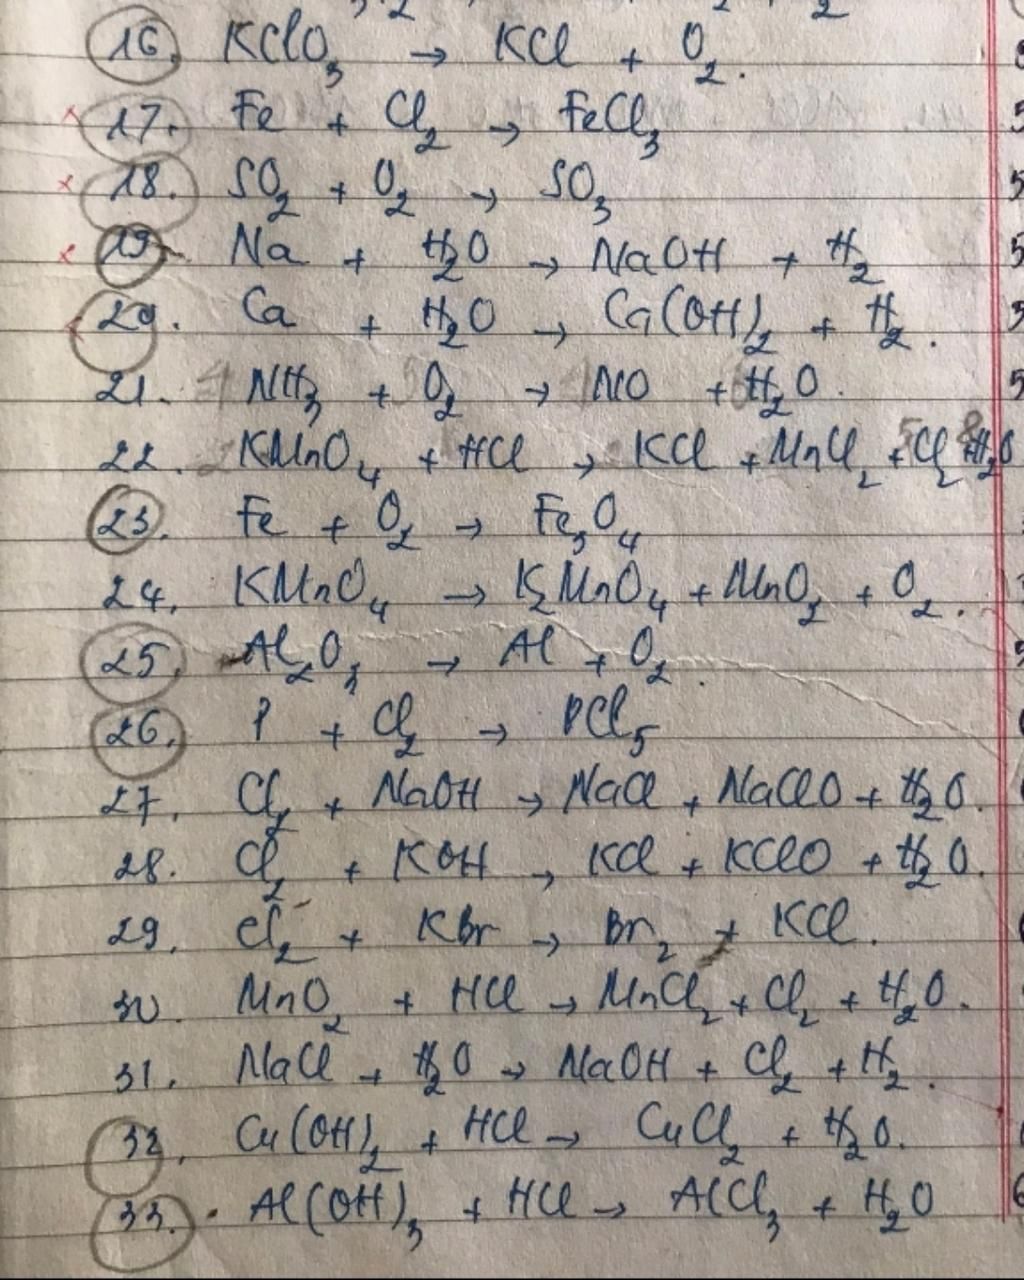 16. KClO₃ → KCl + O₂.
17. Fe + Cl₂ → FeCl₃
18. SO₂ + O₂ → SO₃
19. Na + H₂O → NaOH + H₂
20. Ca + H₂O → Ca(OH)₂ + H₂.
21. 4 NH₃ + 5 O₂ → 4 NO + 6 H₂O.
22. 2 KMnO₄ + HCl → KCl + MnCl₂ + 5 Cl₂ 8 H₂O
23. Fe + O₂ → Fe₃O₄
24. KMnO₄ → K₂MnO₄ + MnO₂ + O₂.
25. Al₂O₃ → Al + O₂.
26. P + Cl₂ → PCl₅
27. Cl₂ + NaOH → NaCl + NaClO + H₂O.
28. Cl₂ + KOH → KCl + KClO + H₂O.
29. Cl₂ + KBr → Br₂ + KCl.
30. MnO₂ + HCl → MnCl₂ + Cl₂ + H₂O.
31. NaCl + H₂O → NaOH + Cl₂ + H₂.
32. Cu(OH)₂ + HCl → CuCl₂ + H₂O.
33. Al(OH)₃ + HCl → AlCl₃ + H₂O